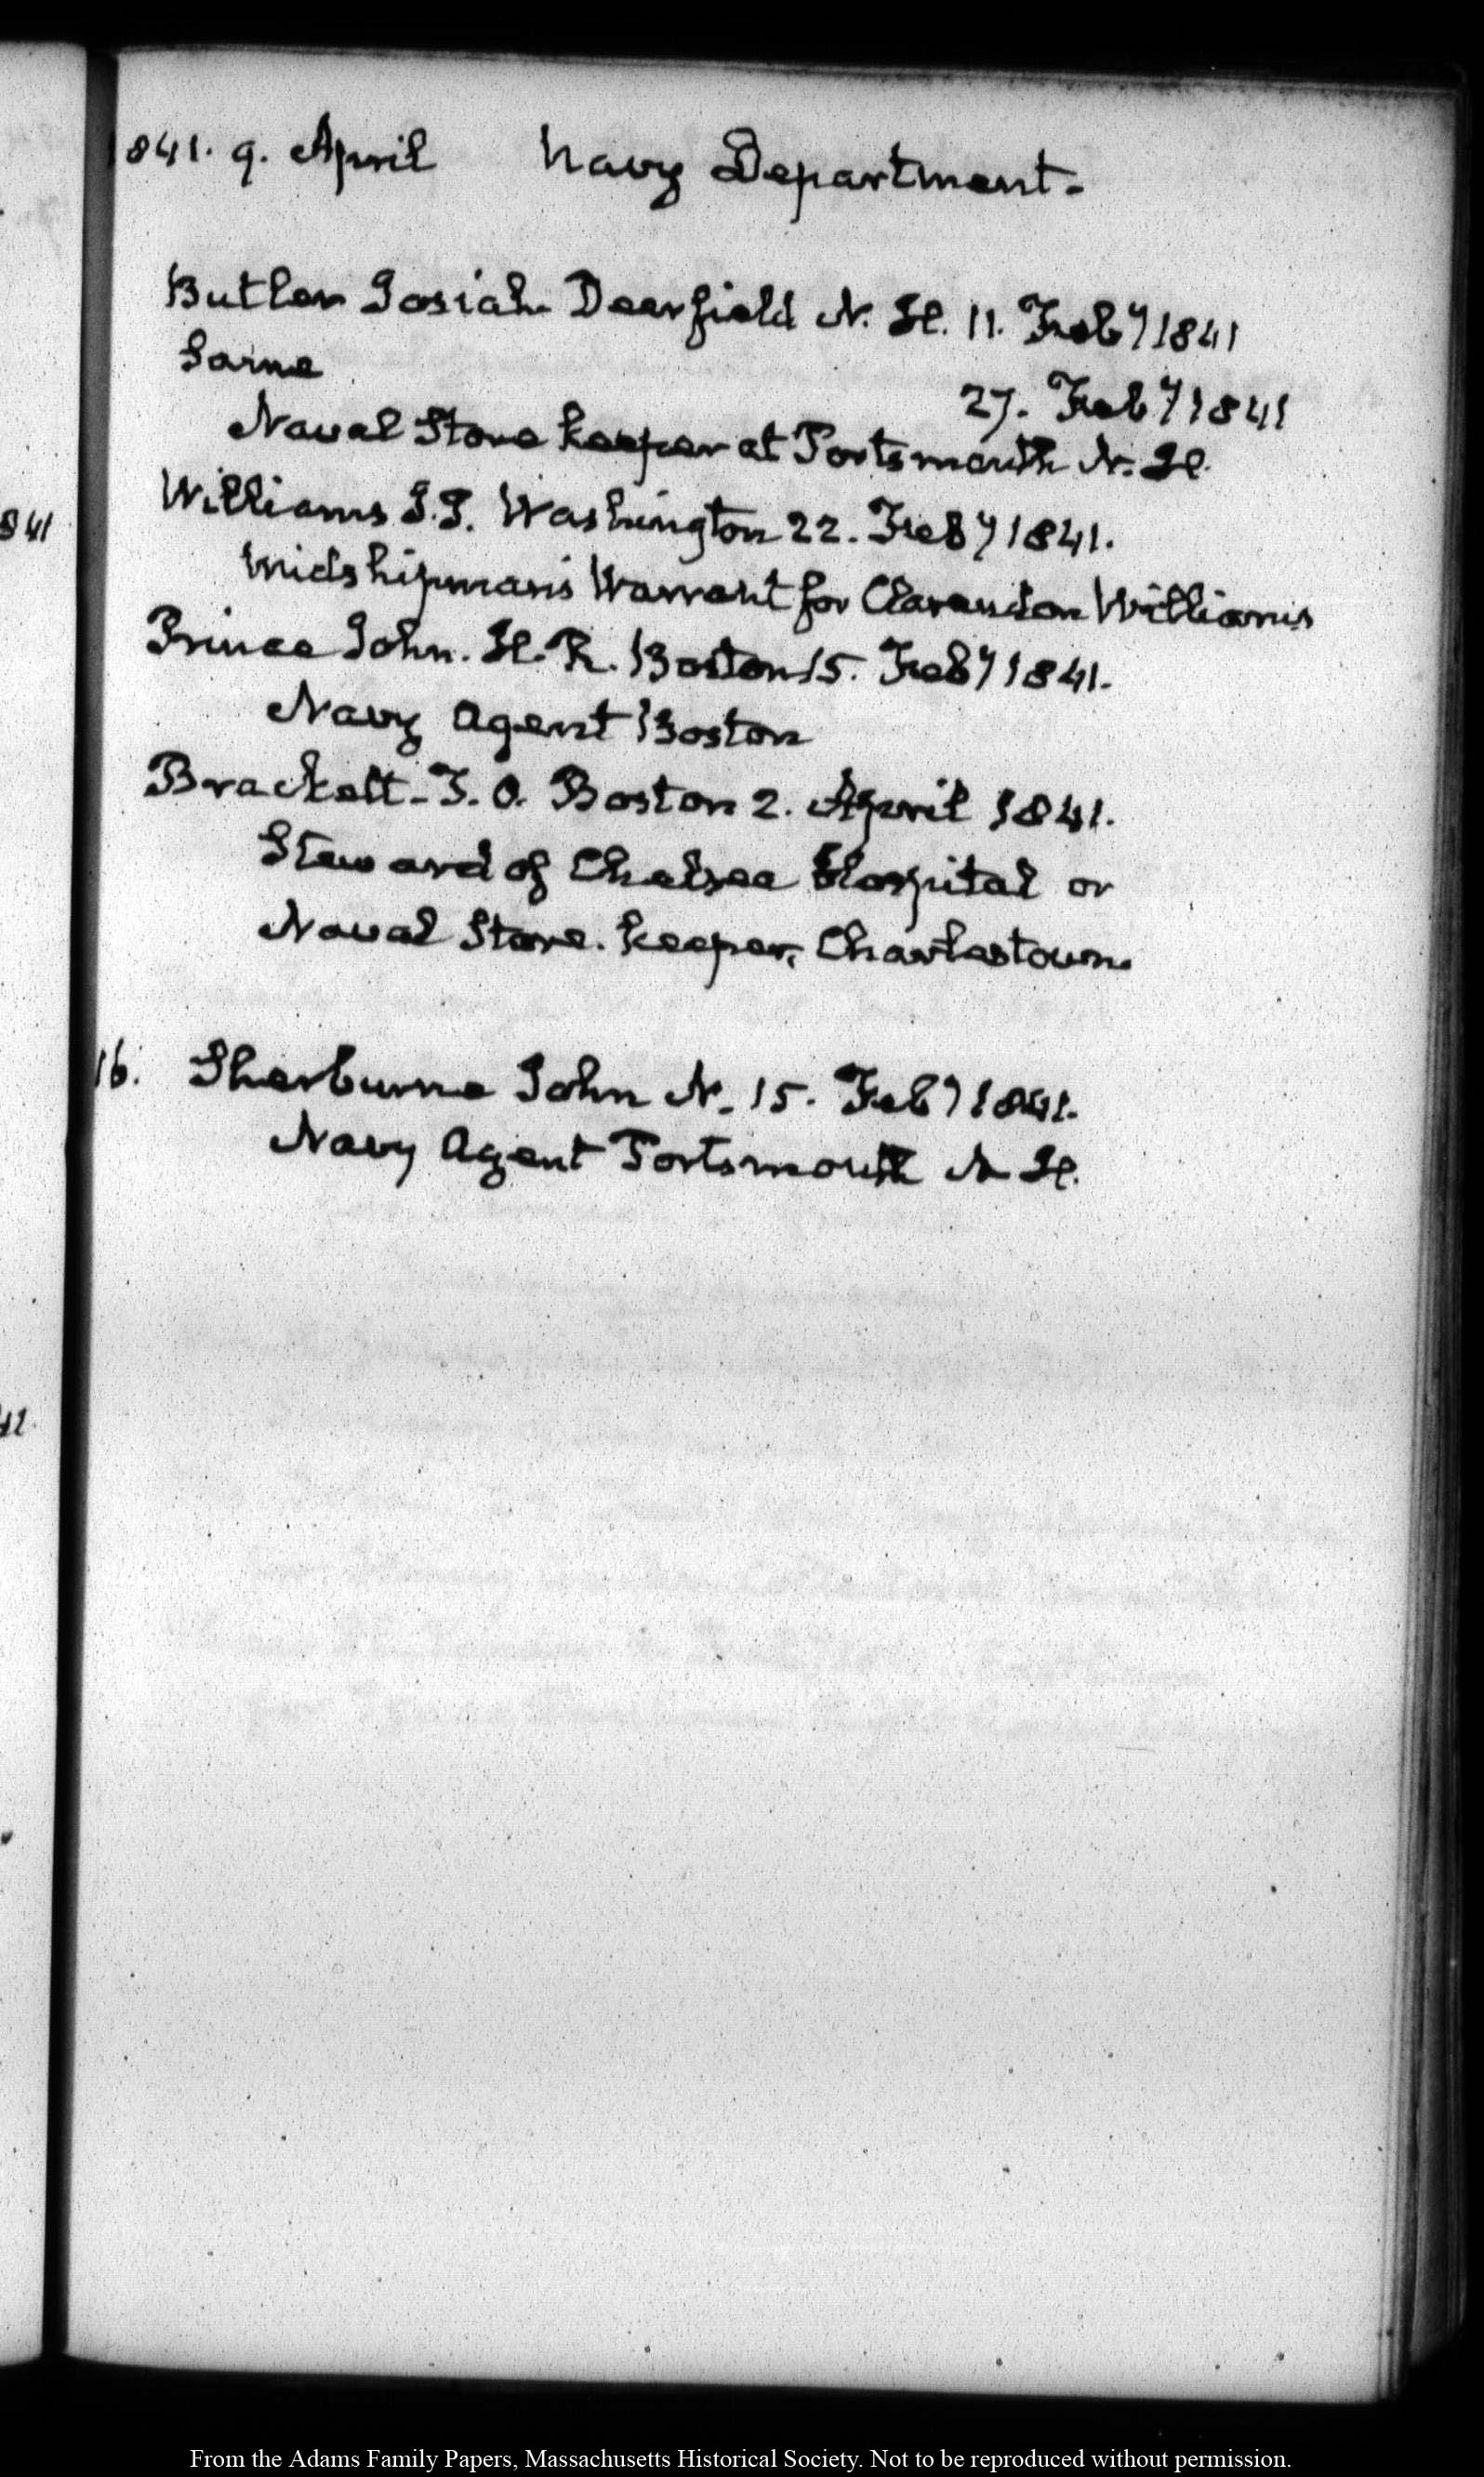 1841. 9. April Navy Department.
Butler Josiah Deerfield N. H. 11. Feby 1841
Same 27. Feby 1841
Naval Store keeper at Portsmouth N. H.
Williams J. J. Washington 22. Feby 1841.
Midshipman's Warrant for Clarendon Williams
Prince John. H. R. Boston 15. Feby 1841.
Navy Agent Boston
Brackett. J. O. Boston 2. April 1841.
Steward of Chelsea Hospital or
Naval Store. keeper, Charlestown.
16. Sherburne John N. 15. Feby 1841.
Navy Agent Portsmouth N H.
841
41
From the Adams Family Papers, Massachusetts Historical Society. Not to be reproduced without permission.